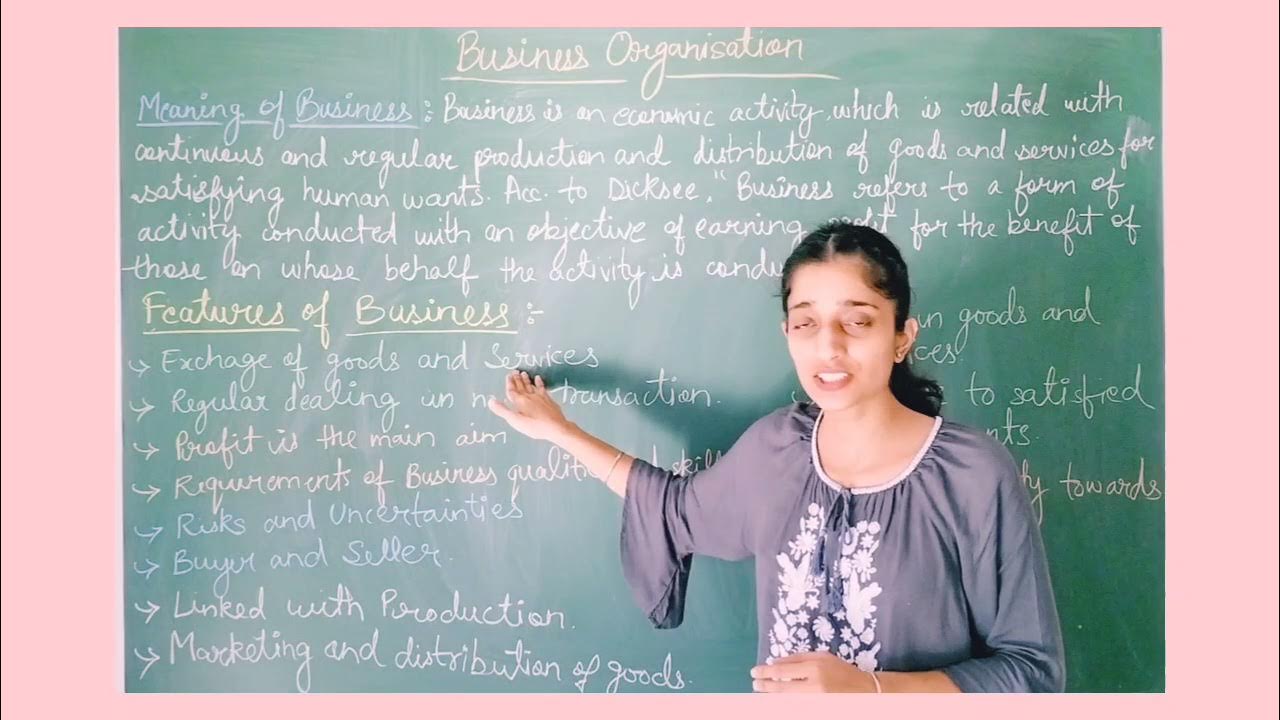 Business Organisation
Meaning of Business : Business is an economic activity which is related with
continuous and regular production and distribution of goods and services for
satisfying human wants. Acc. to Dicksee, "Business refers to a form of
activity conducted with an objective of earning for the benefit of
those on whose behalf the activity is
Features of Business :-
→ Exchage of goods and Services
→ Regular dealing in transaction.
→ Profit is the main aim
→ Requirements of Business
→ Risks and Uncertainties
→ Buyer and Seller.
→ Linked with Production.
→ Marketing and distribution of goods.
goods and
to satisfied
towards